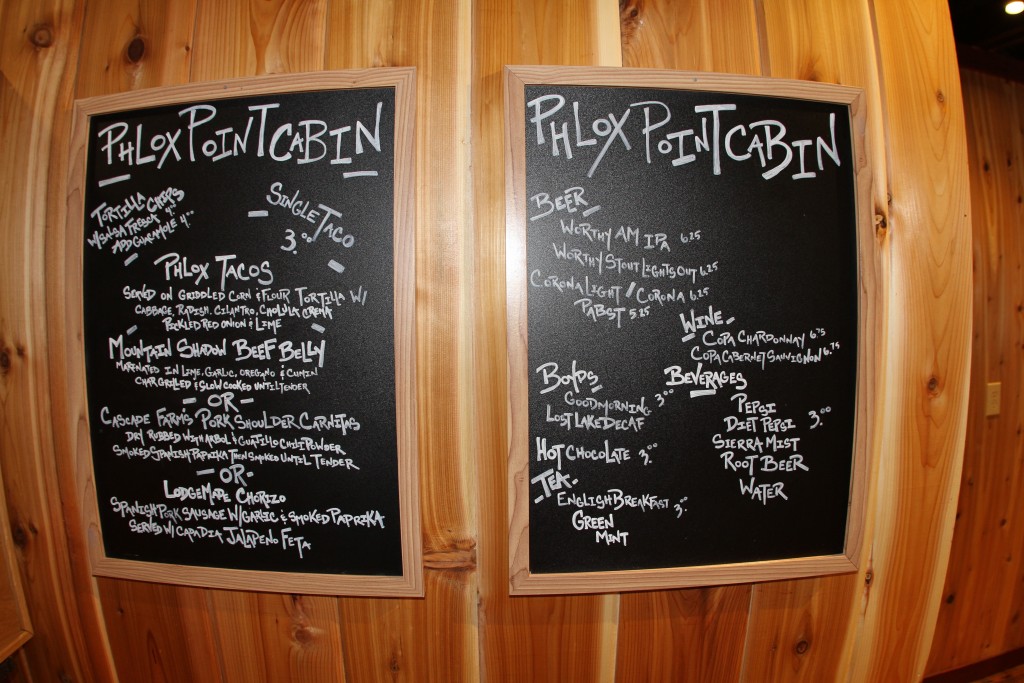 PHLOX POINT CABIN
TORTILLA CHIPS
W/SALSA FRESCA 4.00
ADD GUACAMOLE 4.00
SINGLE TACO
3.00
PHLOX TACOS
SERVED ON GRIDDLED CORN & FLOUR TORTILLA W/
CABBAGE, RADISH, CILANTRO, CHOLULA CREMA
PICKLED RED ONION & LIME
MOUNTAIN SHADOW BEEF BELLY
MARINATED IN LIME, GARLIC, OREGANO & CUMIN
CHAR GRILLED & SLOW COOKED UNTIL TENDER
- OR -
CASCADE FARMS PORK SHOULDER CARNITAS
DRY RUBBED WITH ARBOL & GUAJILLO CHILI POWDER
SMOKED SPANISH PAPRIKA THEN SMOKED UNTIL TENDER
- OR -
LODGE MADE CHORIZO
SPANISH PORK SAUSAGE W/GARLIC & SMOKED PAPRIKA
SERVED W/ CAPADIA JALAPENO FETA
PHLOX POINT CABIN
BEER
WORTHY AM IPA 6.25
WORTHY STOUT LIGHTS OUT 6.25
CORONA LIGHT / CORONA 6.25
PABST 5.25
WINE
COPA CHARDONNAY 6.75
COPA CABERNET SAUVIGNON 6.75
BOYDS
GOOD MORNING 3.00
LOST LAKE DECAF
HOT CHOCOLATE 3.00
TEA
ENGLISH BREAKFAST 3.00
GREEN
MINT
BEVERAGES
PEPSI
DIET PEPSI 3.00
SIERRA MIST
ROOT BEER
WATER